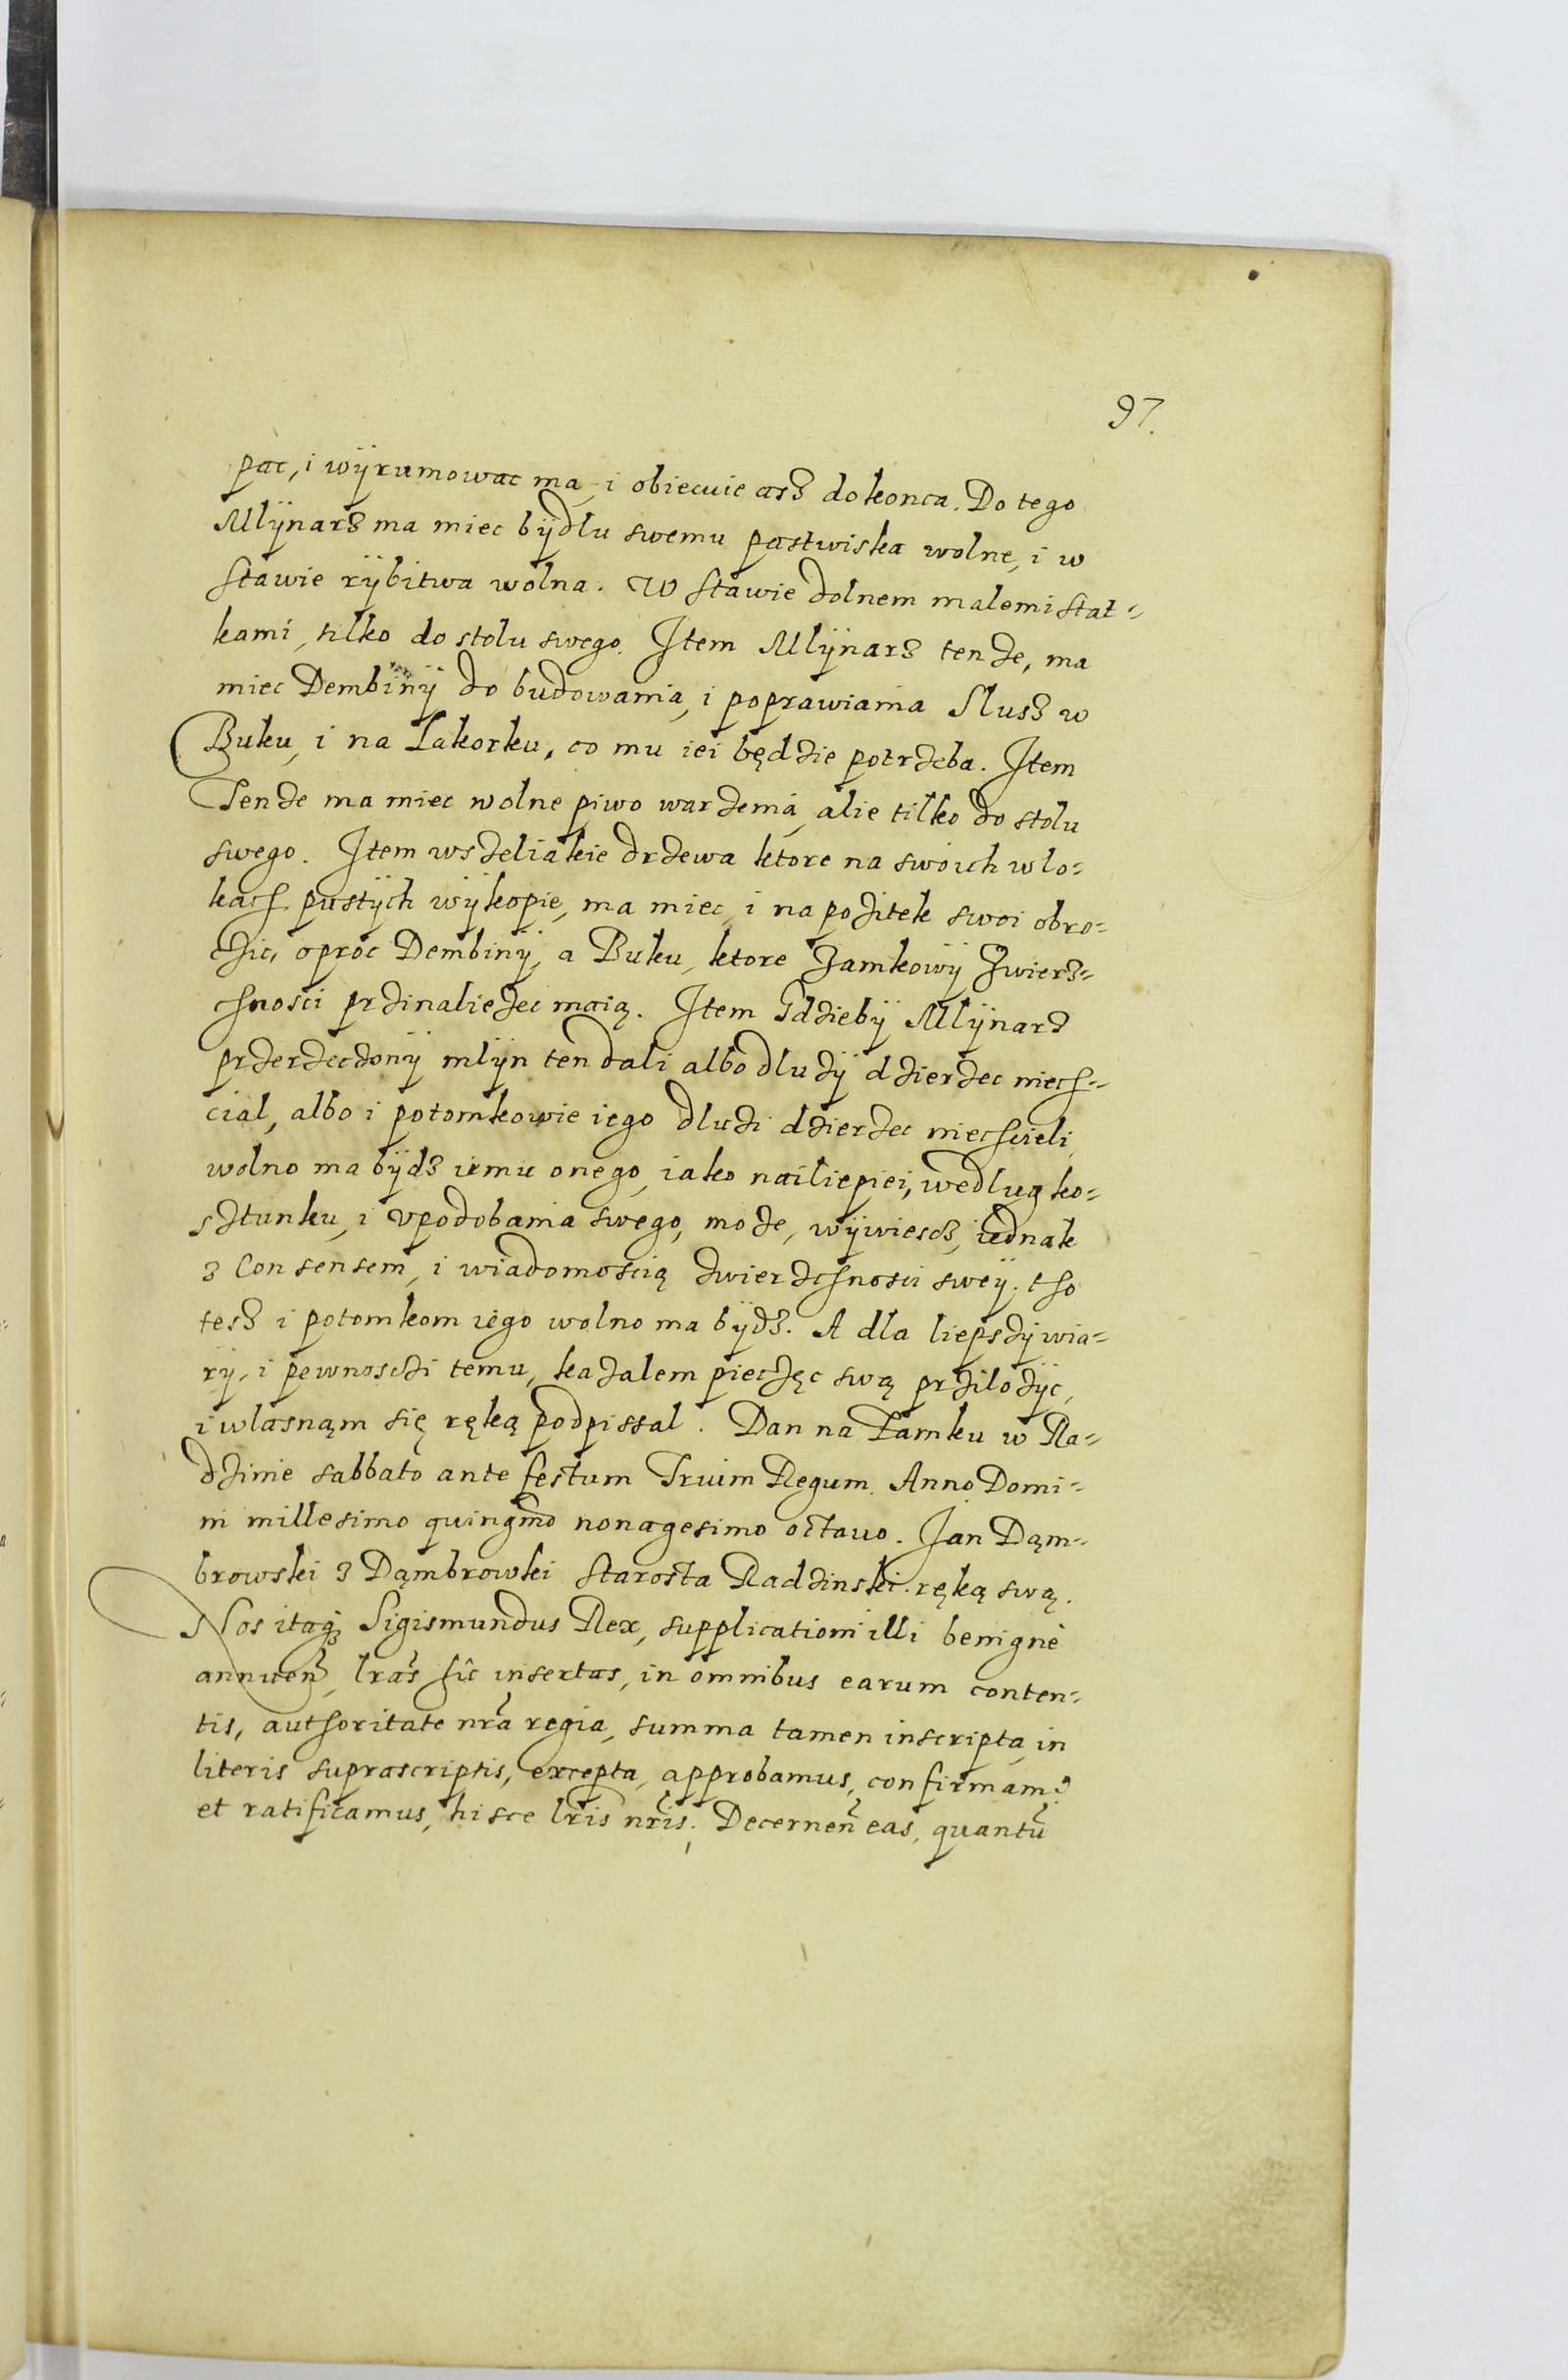 97.
pac, i wÿrumowac ma, i obiecuie asz do konca. Do tego
Mlÿnarz ma miec bÿdlu swemu pastwiska wolne, i w
stawie rÿbitwa wolna. W stawie dolnem malemi stat-
kami, tilko do stolu swego. Item Mlÿnarz tenze, ma
miec Dembinÿ do budowania, i poprawiania Slusz w
Buku, i na Lakorku, co mu iei będzie potrzeba. Item
Tenze ma miec wolne piwo warzenia, alie tilko do stolu
swego. Item wszeliakie drzewa ktore na swoich wlo-
kach pustÿch wÿkopie, ma miec, i na pozitek swoi obro-
czic, oproc Dembinÿ, a Buku, ktore Zamkowÿ Zwierz-
chnosci przinaliezec maią. Item Gdziebÿ Mlÿnarz
przerzeczonÿ mlÿn ten dali albo dluzÿ dzierzec niech-
cial, albo i potomkowie iego dluzi dzierzec niechcieli,
wolno ma bÿdz iemu onego, iako nailiepiei, wedlug ko-
sztunku, i vpodobania swego, moze, wÿwiescz, iednak
z Consensem, i wiadomoscią zwierzchnosci sweÿ. tho
tesz i potomkom iego wolno ma bÿdz. A dla liepszÿ wia-
rÿ, i pewnosczi temu, kazalem pieczęc swą przilozÿc,
i wlasnąm się ręką podpissal. Dan na Zamku w Ra-
dzinie sabbato ante festum Trium Regum. Anno Domi-
ni millesimo quingmo nonagesimo octauo. Jan Dąm-
browski z Dąmbrowki Starosta Radzinski. ręką swą.
Nos itaq3 Sigismundus Rex, supplicationi illi benignè
annuen, lras sic insertas, in omnibus earum conten-
tis, authoritate nra regia, summa tamen inscripta in
literis suprascriptis, excepta, approbamus, confirmam9
et ratificamus, hisce lris nris. Decernen eas, quantu